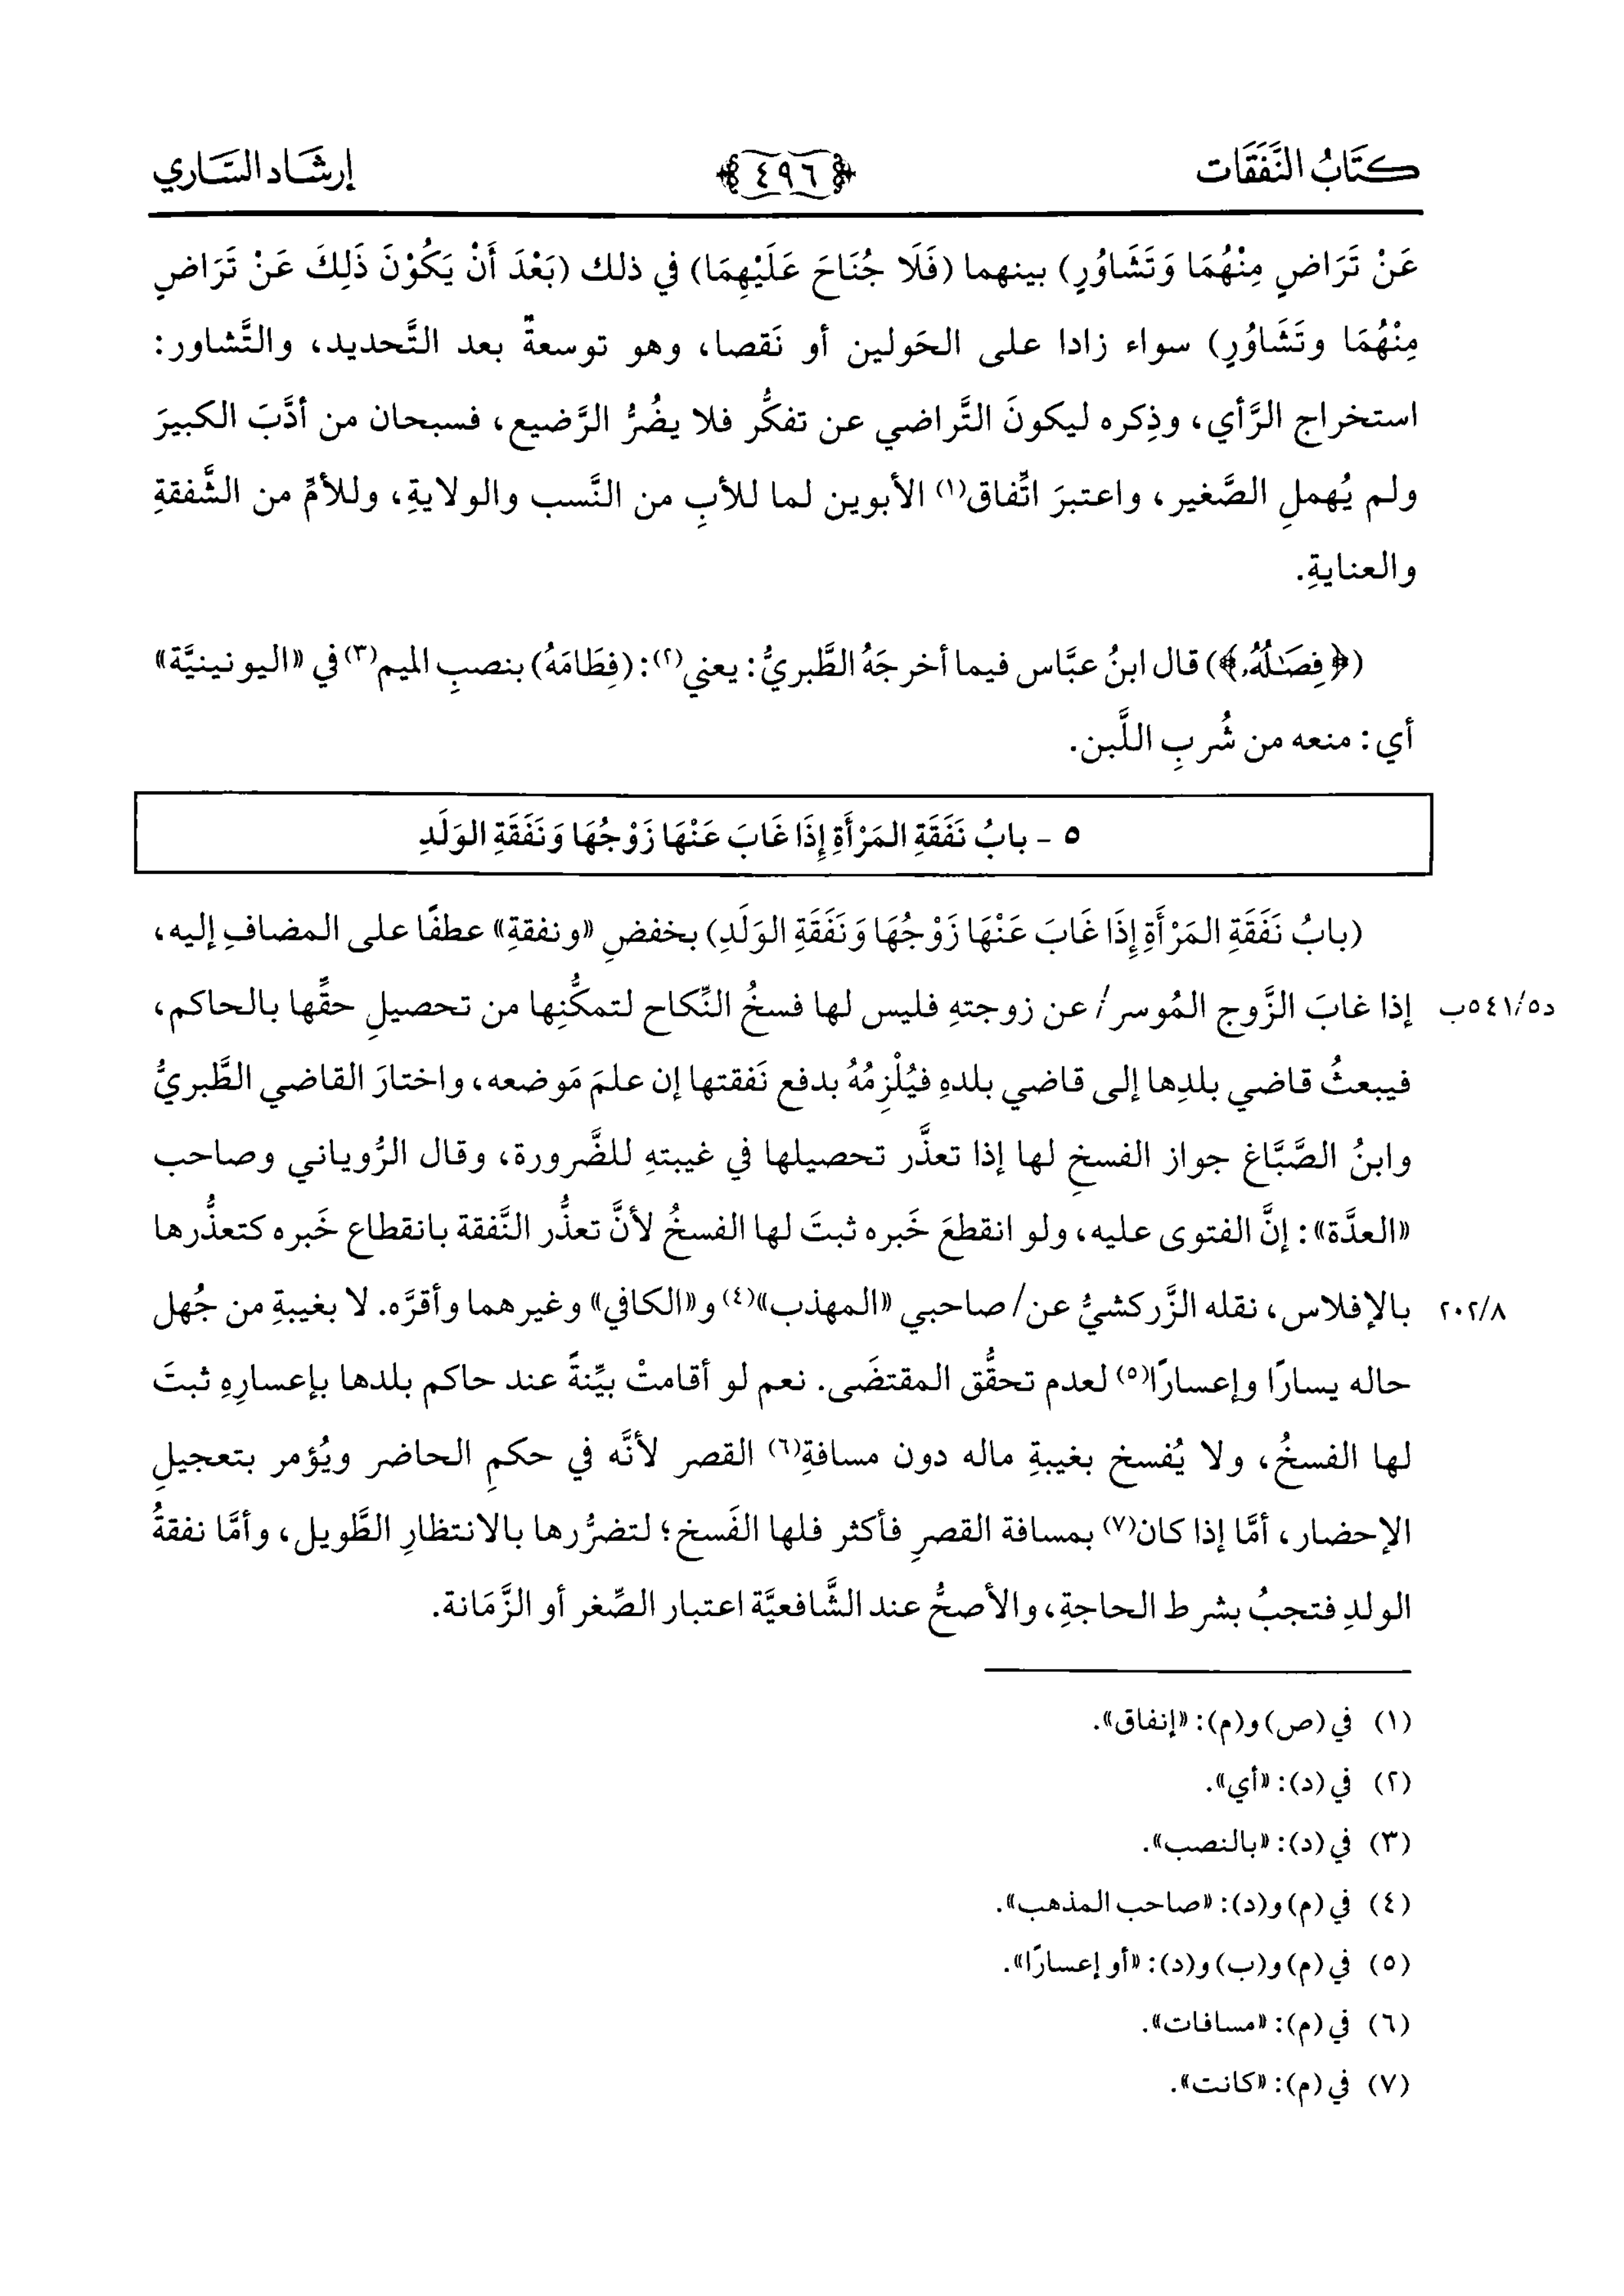 كتَابُ النَّفَقَات
٤٩٦
إرشَاد السَّاري
عَنْ تَرَاضٍ مِنْهُمَا وَتَشَاوُرٍ) بينهما (فَلَا جُنَاحَ عَلَيْهِمَا) في ذلك (بَعْدَ أَنْ يَكُوْنَ ذَلِكَ عَنْ تَرَاضٍ
مِنْهُمَا وتَشَاوُرٍ) سواء زادا على الحَولين أو نَقصا، وهو توسعةٌ بعد التَّحديد، والتَّشاور:
استخراج الرَّأي، وذِكره ليكونَ التَّراضي عن تفكُّر فلا يضُرُّ الرَّضيع، فسبحان من أدَّبَ الكبيرَ
ولم يُهملِ الصَّغير، واعتبرَ اتِّفاق(١) الأبوين لما للأبِ من النَّسب والولايةِ، وللأمِّ من الشَّفقةِ
والعنايةِ.
(﴿فِصَٰلُهُۥ﴾) قال ابنُ عبَّاس فيما أخرجَهُ الطَّبريُّ: يعني(٢): (فِطَامَهُ) بنصبِ الميم(٣) في «اليونينيَّة»
أي: منعه من شُربِ اللَّبن.
٥ - بابُ نَفَقَةِ المَرْأَةِ إِذَا غَابَ عَنْهَا زَوْجُهَا وَنَفَقَةِ الوَلَدِ
(بابُ نَفَقَةِ المَرْأَةِ إِذَا غَابَ عَنْهَا زَوْجُهَا وَنَفَقَةِ الوَلَدِ) بخفضِ «ونفقةِ» عطفًا على المضافِ إليه،
د٥/٥٤١ب إذا غابَ الزَّوج المُوسر/ عن زوجتهِ فليس لها فسخُ النِّكاح لتمكُّنِها من تحصيلِ حقِّها بالحاكم،
فيبعثُ قاضي بلدِها إلى قاضي بلدهِ فيُلْزِمُهُ بدفع نَفقتها إن علمَ مَوضعه، واختارَ القاضي الطَّبريُّ
وابنُ الصَّبَّاغ جواز الفسخِ لها إذا تعذَّر تحصيلها في غيبتهِ للضَّرورة، وقال الرُّوياني وصاحب
«العدَّة»: إنَّ الفتوى عليه، ولو انقطعَ خَبره ثبتَ لها الفسخُ لأنَّ تعذُّر النَّفقة بانقطاع خَبره كتعذُّرها
٢٠٢/٨ بالإفلاس، نقله الزَّركشيُّ عن/ صاحبي «المهذب»(٤) و«الكافي» وغيرهما وأقرَّه. لا بغيبةِ من جُهل
حاله يسارًا وإعسارًا(٥) لعدم تحقُّق المقتضَى. نعم لو أقامتْ بيِّنةً عند حاكم بلدها بإعسارِهِ ثبتَ
لها الفسخُ، ولا يُفسخ بغيبةِ ماله دون مسافةِ(٦) القصر لأنَّه في حكمِ الحاضر ويُؤمر بتعجيلِ
الإحضار، أمَّا إذا كان(٧) بمسافة القصرِ فأكثر فلها الفَسخ؛ لتضرُّرها بالانتظارِ الطَّويل، وأمَّا نفقةُ
الولدِ فتجبُ بشرط الحاجةِ، والأصحُّ عند الشَّافعيَّة اعتبار الصِّغر أو الزَّمَانة.
(١) في (ص) و(م): «إنفاق».
(٢) في (د): «أي».
(٣) في (د): «بالنصب».
(٤) في (م) و(د): «صاحب المذهب».
(٥) في (م) و(ب) و(د): «أو إعسارًا».
(٦) في (م): «مسافات».
(٧) في (م): «كانت».